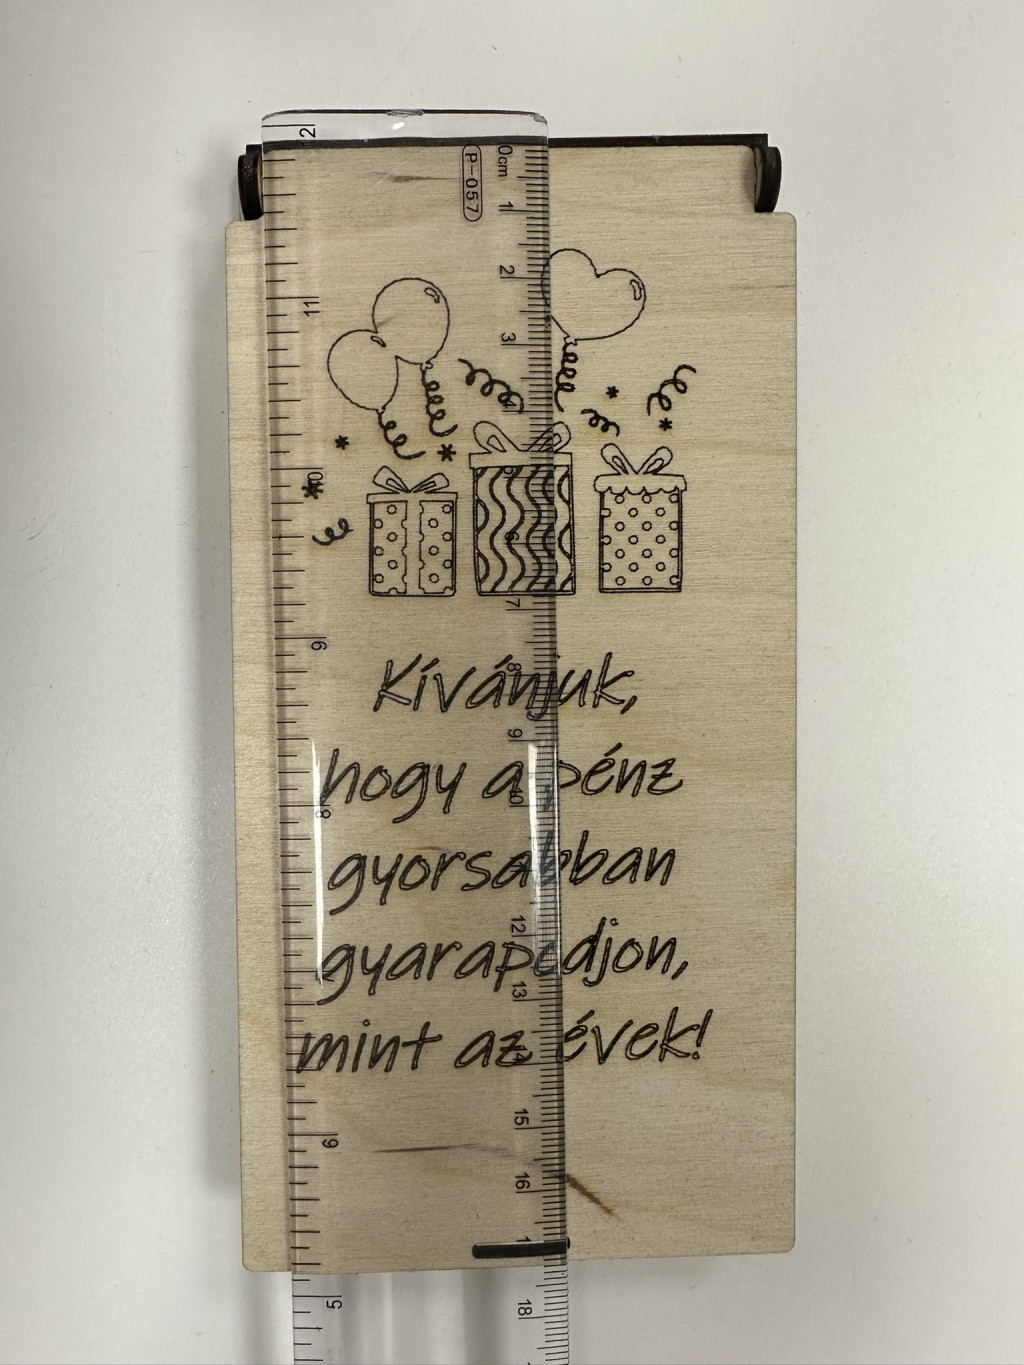 12
P-057
0cm
1
2
11
3
4
10
5
6
7
9
8
Kívánjuk,
9
hogy a pénz
8
10
gyorsabban
12
gyarapodjon,
13
mint az évek!
14
15
6
16
5
18